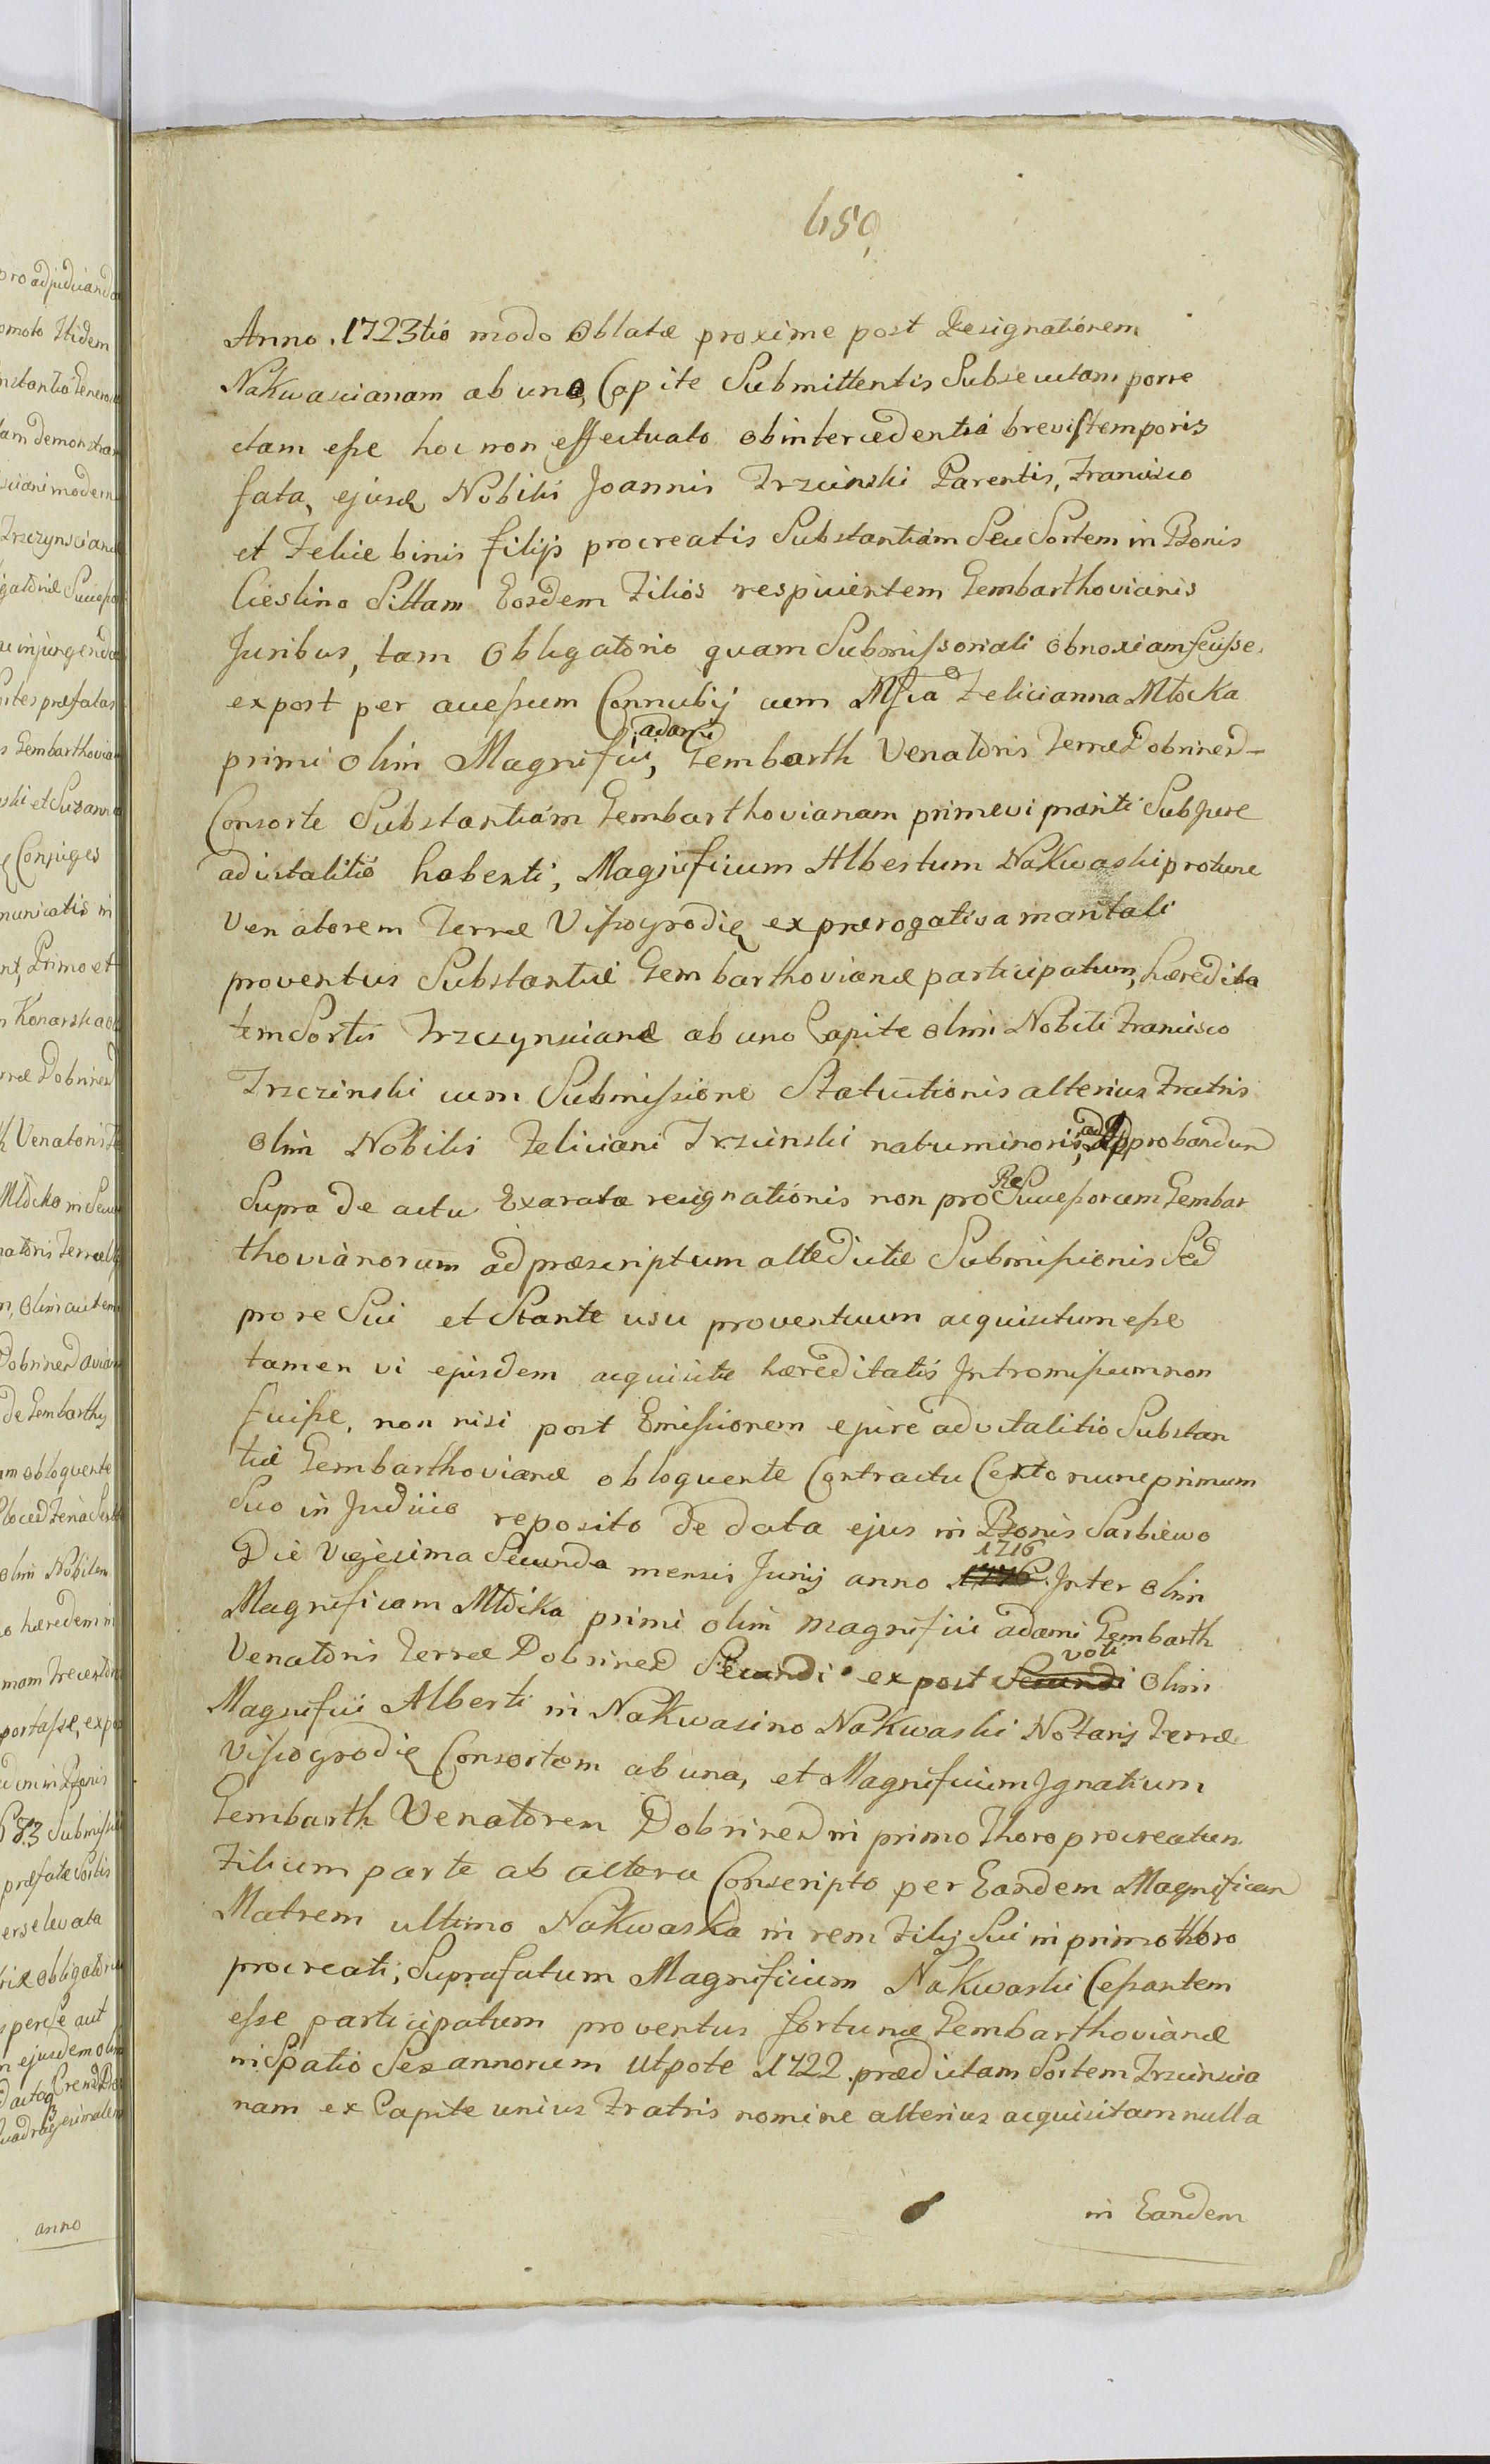 459
Anno 1723tio modo Oblatæ proxime post Resignationem
Nakwascianam ab uno Capite Submittentis Subsecutam porre
ctam esse hoc non effectuato ob intercedentia brevis temporis
fata, ejusdę Nobilis Joannis Trzcinski Parentis, Francisco
et Felice binis filijs procreatis Substantiam Seu Sortem in Bonis
Cieslino Sittam Eosdem Filios respicientem Gembarthovianis
Juribus, tam Obligatorio quam Submissoriali obnoxiam fuisse,
expost per accessum Connubij cum Mfca Felicianna Młocka
primi olim Magnifici, adami Gembarth Venatoris Terræ Dobrinen
Consorte Substantiam Gembarthovianam primevi mariti Sub Jure
advitalitio habenti, Magnificum Albertum Nakwaski protunc
Venatorem Terræ Vissogrodię ex prærogativa maritali
proventus Substantiæ Gembarthovianæ participatum, hæredita
tem Sortis Trzczynscianæ ab uno Capite olim Nobili Francisco
Trzczinski cum Submissione Statuitionis alterius Fratris
Olim Nobilis Feliciani Trzcinski natu minoris, ad Approbandum
Supra de actu Exarata resignationis non pro Re Successorum Gembar
thovianorum ad præscriptum altedictæ Submissionis Sed
pro re Sui et Stante usu proventuum acquisitum esse
tamen vi ejusdem acquisitæ hæreditatis Intromissum non
fuisse, non nisi post Emissionem e jure advitalitio Substan
tiæ Gembarthovianæ obloquente Contractu Certo nunc primum
Suo in Judicio reposito de data ejus in Bonis Sarbiewo
Die Vigesima Secunda mensis Junij anno 1716 Inter olim
Magnificam Młocka primi olim magnifici adami Gembarth
Venatoris Terræ Dobrinen Secundi expost voti Olim
Magnifici Alberti in Nakwasino Nakwaski Notarij Terræ
Vissogrodię Consortem ab una, et Magnificum Ignatium
Gembarth Venatorem Dobrinen in primo Thoro procreatum
Filium parte ab altera Conscripto per Eandem Magnificam
Matrem ultimo Nakwaska in rem Filij Sui in primo thoro
procreati, Suprafatum Magnificum Nakwaski Cessantem
esse participatum proventus fortunæ Gembarthovianæ
in Spatio Sex annorum Utpote 1722 prædictam Sortem Trzcinscia
nam ex Capite unius Fratris nomine alterius acquisitam nulla
in Eandem